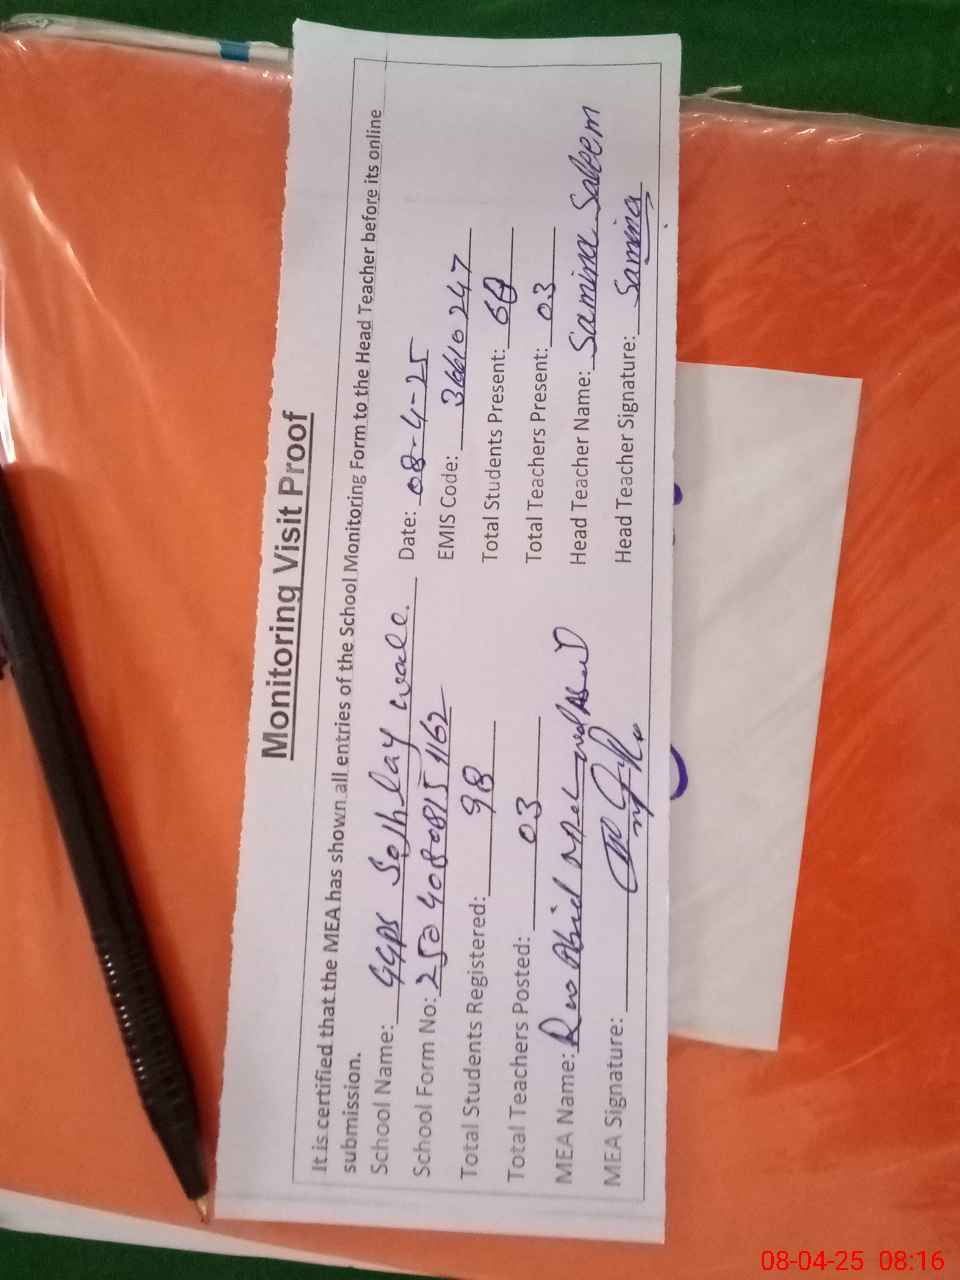 Monitoring Visit Proof
It is certified that the MEA has shown all entries of the School Monitoring Form to the Head Teacher before its online
submission.
School Name: GGPS Solhlay wale. Date: 08-4-25
School Form No: 25040808151162 EMIS Code: 36610247
Total Students Registered: 98 Total Students Present:
Total Teachers Posted: 03 Total Teachers Present: 03
MEA Name: Rao Abid Head Teacher Name: Samina Saleem
MEA Signature: Head Teacher Signature: Samina
08-04-25 08:16